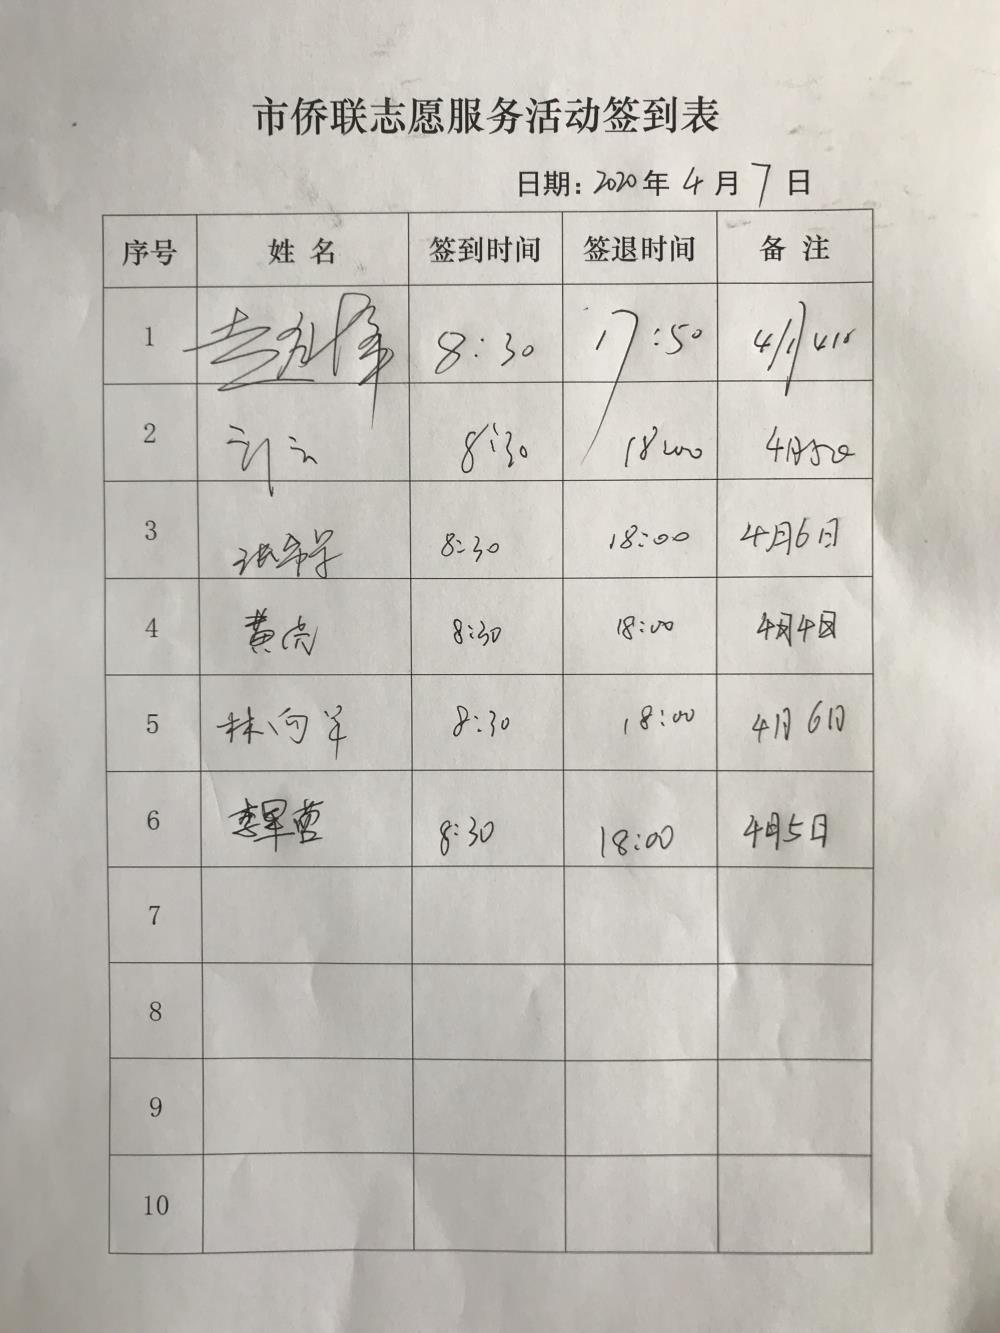 市侨联志愿服务活动签到表
日期: 2020 年 4 月 7 日
序号 姓 名 签到时间 签退时间 备 注
1 8:30 17:50
2 8:30 18:00
3 8:30 18:00 4月6日
4 黄亮 8:30 18:00 4月4日
5 林向羊 8:30 18:00 4月6日
6 8:30 18:00 4月5日
7
8
9
10